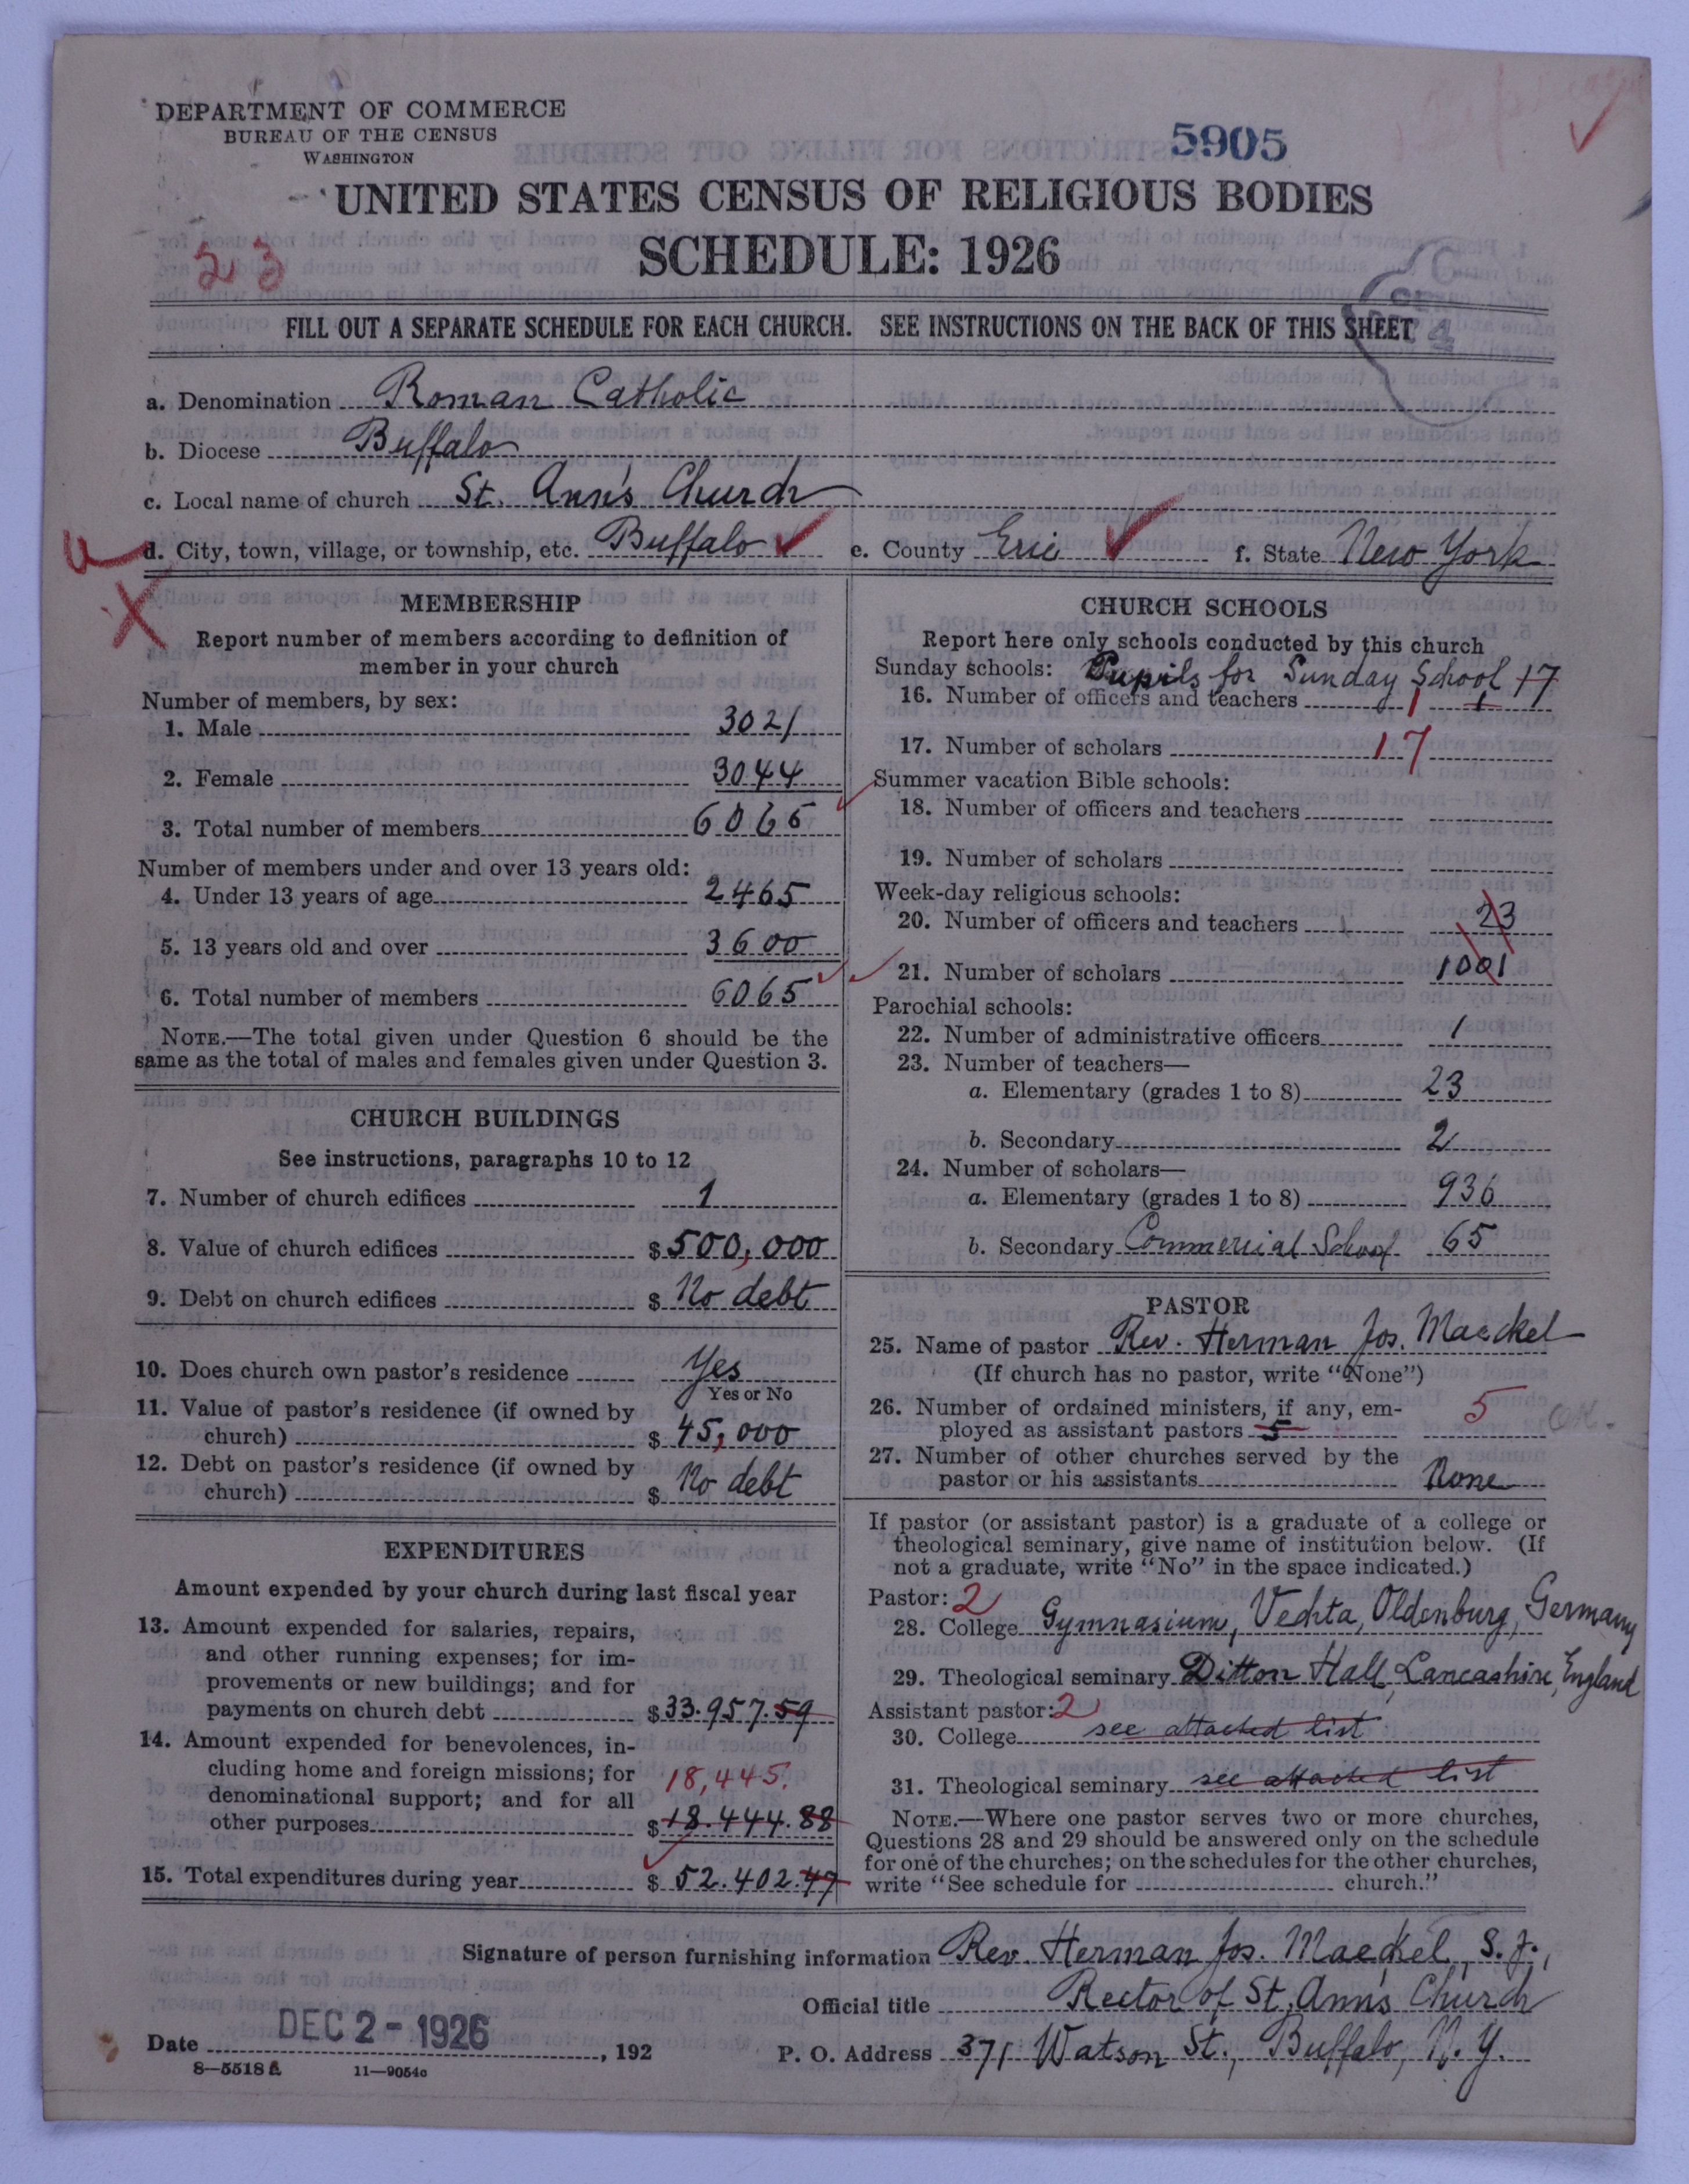 DEPARTMENT OF COMMERCE
BUREAU OF THE CENSUS
WASHINGTON
5905
UNITED STATES CENSUS OF RELIGIOUS BODIES
SCHEDULE: 1926
23
FILL OUT A SEPARATE SCHEDULE FOR EACH CHURCH. SEE INSTRUCTIONS ON THE BACK OF THIS SHEET
a. Denomination Roman Catholic
b. Diocese Buffalo
c. Local name of church St. Ann's Church
d. City, town, village, or township, etc. Buffalo e. County Erie f. State New York
MEMBERSHIP
Report number of members according to definition of
member in your church
Number of members, by sex:
1. Male 3021
2. Female 3044
3. Total number of members 6065
Number of members under and over 13 years old:
4. Under 13 years of age 2465
5. 13 years old and over 3600
6. Total number of members 6065
NOTE.—The total given under Question 6 should be the
same as the total of males and females given under Question 3.
CHURCH BUILDINGS
See instructions, paragraphs 10 to 12
7. Number of church edifices 1
8. Value of church edifices $ 500,000
9. Debt on church edifices $ No debt
10. Does church own pastor's residence Yes
Yes or No
11. Value of pastor's residence (if owned by
church) $ 45,000
12. Debt on pastor's residence (if owned by
church) $ No debt
EXPENDITURES
Amount expended by your church during last fiscal year
13. Amount expended for salaries, repairs,
and other running expenses; for im-
provements or new buildings; and for
payments on church debt $ 33.957.59
14. Amount expended for benevolences, in-
cluding home and foreign missions; for
18,445.
denominational support; and for all
other purposes $ 18.444.88
15. Total expenditures during year $ 52.402.47
CHURCH SCHOOLS
Report here only schools conducted by this church
Sunday schools: Pupils for Sunday School 17
16. Number of officers and teachers 1 1
17. Number of scholars 17
Summer vacation Bible schools:
18. Number of officers and teachers
19. Number of scholars
Week-day religious schools:
20. Number of officers and teachers 23
21. Number of scholars 1001
Parochial schools:
22. Number of administrative officers 1
23. Number of teachers—
a. Elementary (grades 1 to 8) 23
b. Secondary 2
24. Number of scholars—
a. Elementary (grades 1 to 8) 936
b. Secondary Commercial School 65
PASTOR
25. Name of pastor Rev. Herman Jos. Maeckel
(If church has no pastor, write "None")
26. Number of ordained ministers, if any, em-
ployed as assistant pastors 5 5 OK.
27. Number of other churches served by the
pastor or his assistants None
If pastor (or assistant pastor) is a graduate of a college or
theological seminary, give name of institution below. (If
not a graduate, write "No" in the space indicated.)
Pastor: 2
28. College Gymnasium, Vechta, Oldenburg, Germany
29. Theological seminary Ditton Hall, Lancashire, England
Assistant pastor: 2
30. College see attached list
31. Theological seminary see attached list
NOTE.—Where one pastor serves two or more churches,
Questions 28 and 29 should be answered only on the schedule
for one of the churches; on the schedules for the other churches,
write "See schedule for church."
Signature of person furnishing information Rev. Herman Jos. Maeckel, S.J.,
Official title Rector of St. Ann's Church
Date DEC 2 - 1926, 192
P. O. Address 371 Watson St., Buffalo, N. Y.
8—5518 A 11—9054c